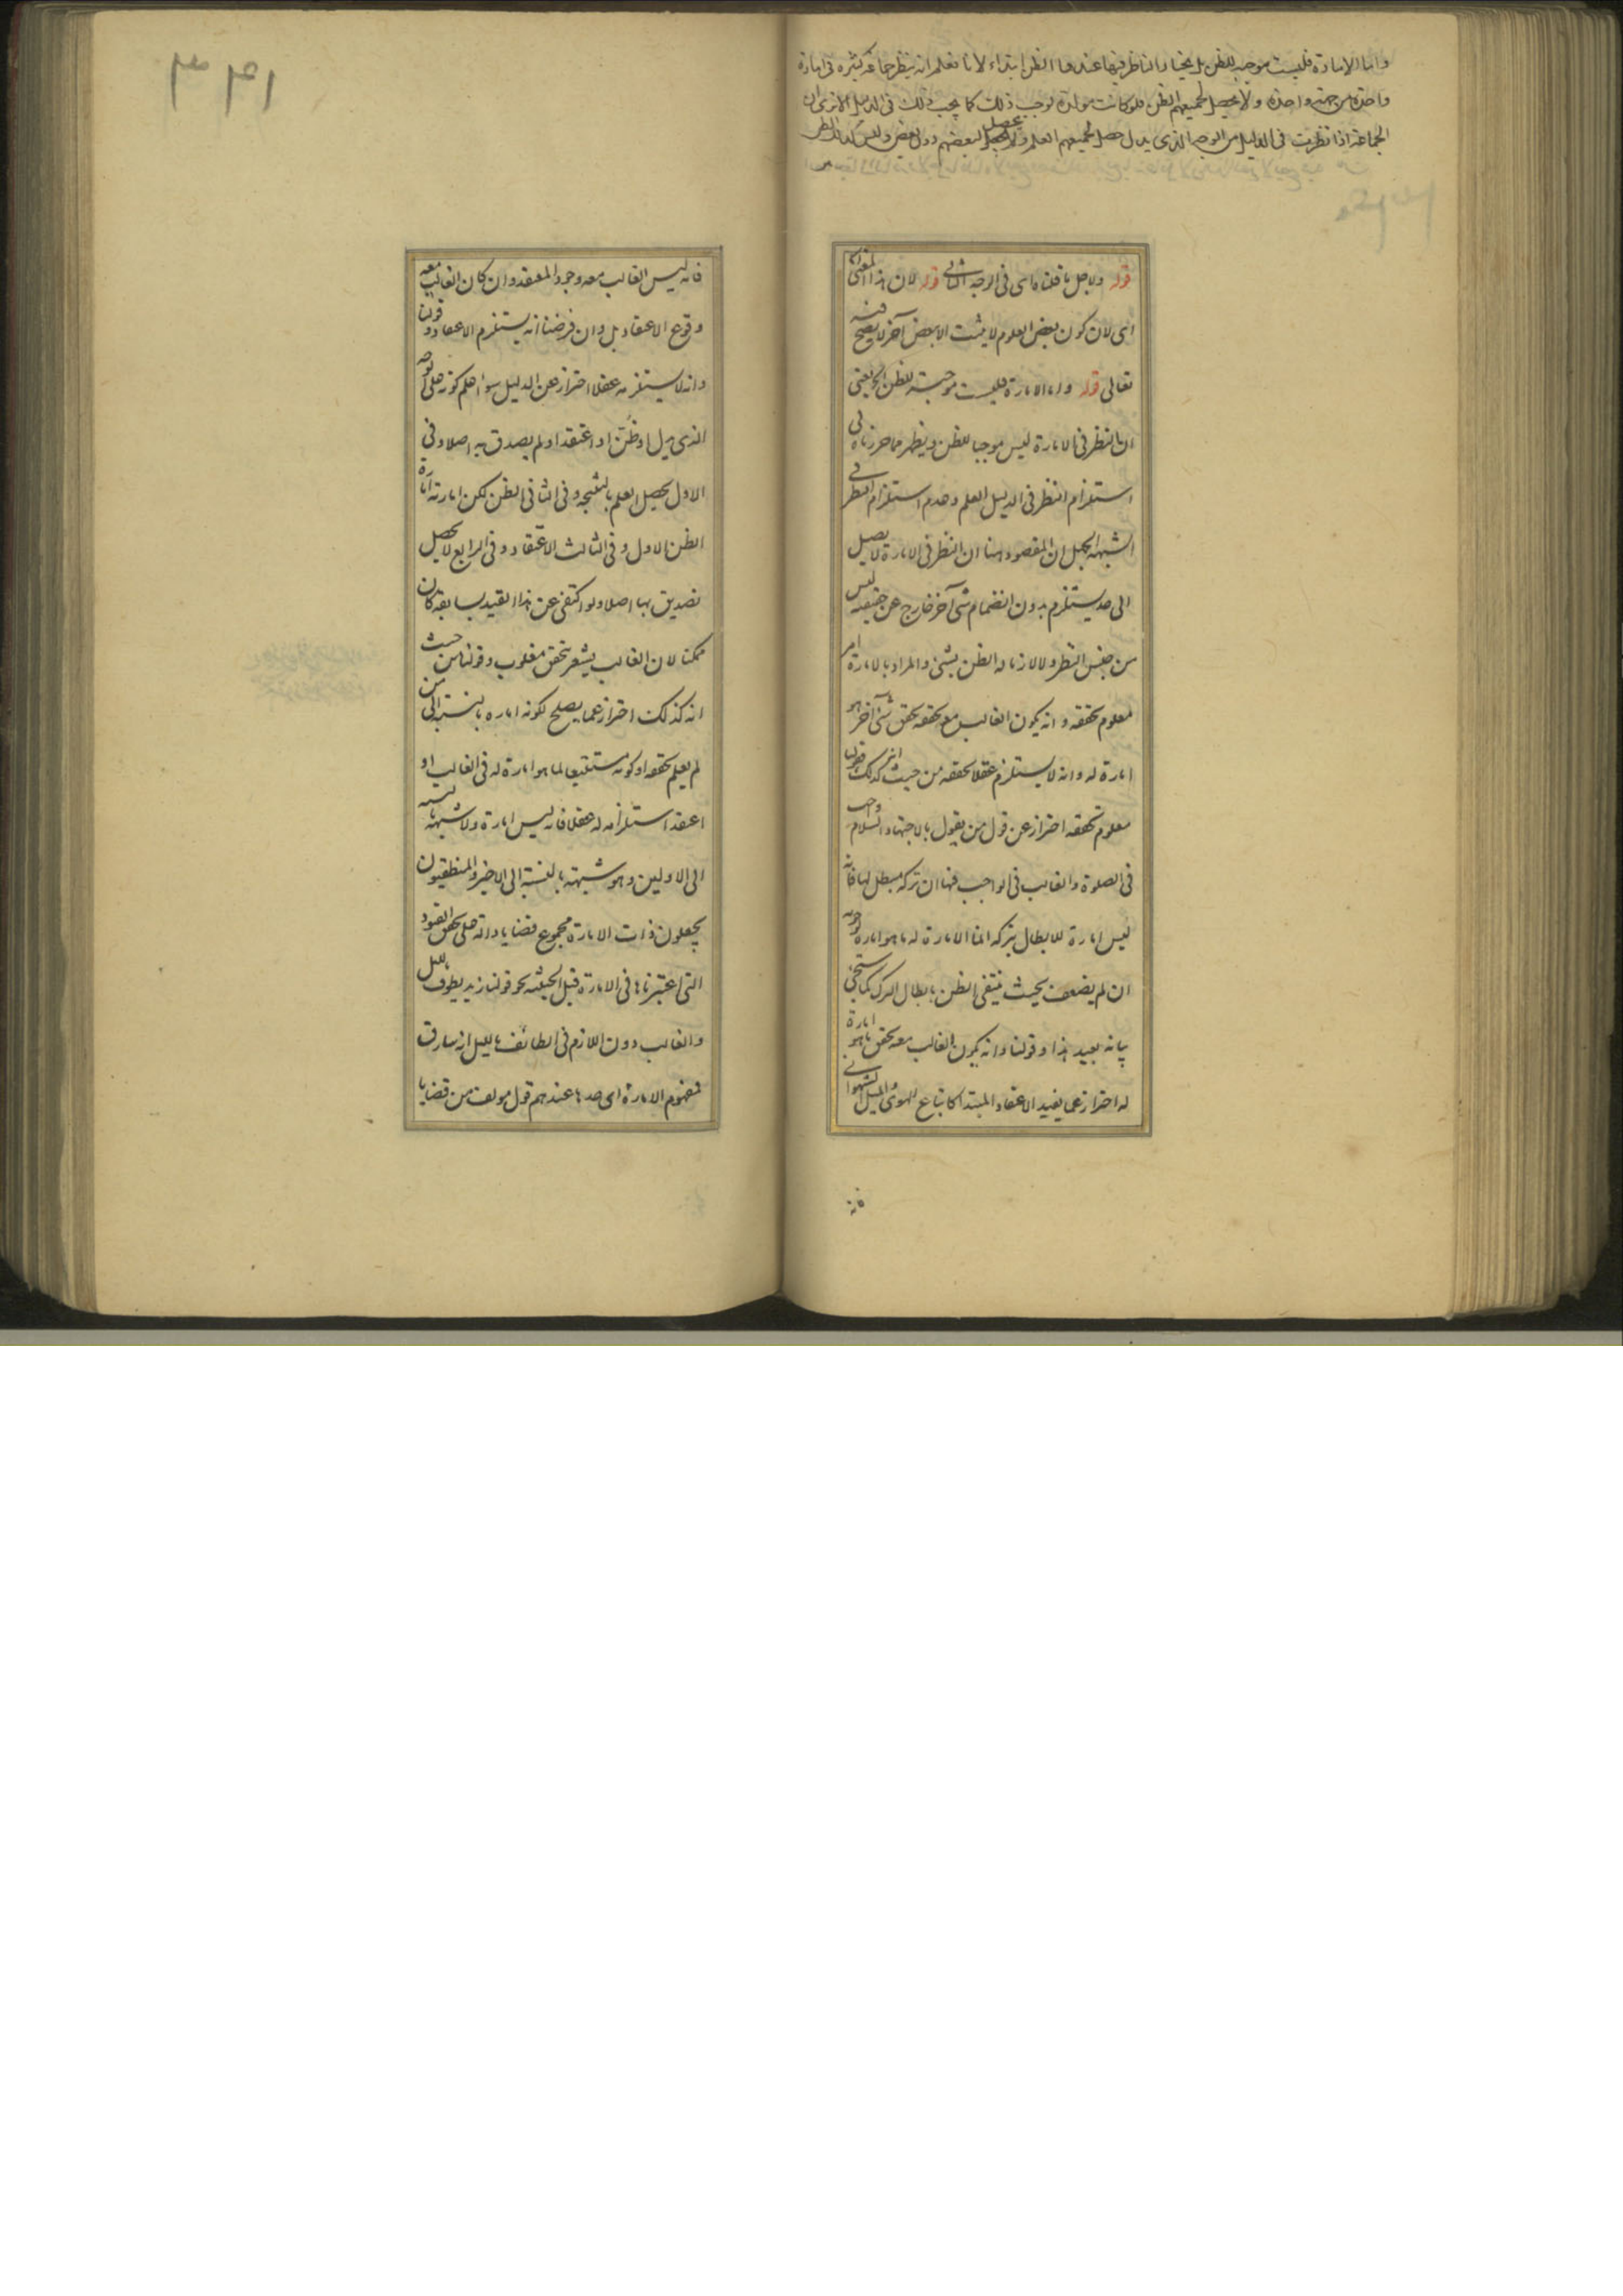 واما الامارة فليست موجبة للظن بل يختار الناظر فيها عندها الظن ابتداء لانا نعلم انه ينظر جماعة كثيرة في امارة
واحدة من جهة واحدة ولا يحصل لجميعهم الظن فلو كانت مولدة لوجب ذلك كما يجب ذلك في الدليل الا ترى ان
الجماعة اذا نظرت في الدليل من الوجه الذي يدل حصل لجميعهم العلم ولا يحصل لبعضهم دون بعض وليس كذلك الظن
قوله ولاجل ما قلناه اي في الوجه الثاني قوله لان هذا المعنى
اي لان كون بعض العلوم لا يثبت الا بعض آخر لا يصح فيه
تعالى قوله واما الامارة فليست موجبة للظن الخ يعني
ان النظر في الامارة ليس موجبا للظن ويظهر مما حررناه في
استلزام النظر في الدليل العلم وعدم استلزام النظر في
الشبهة الجهل ان المقصود هنا ان النظر في الامارة لا يصل
الى حد يستلزم بدون انضمام شيء آخر خارج عن حقيقته ليس
من جنس النظر ولا لازما له الظن بشيء والمراد بالامارة امر
معلوم تحققه وانه يكون الغالب مع تحققه تحقق شيء آخر هو
امارة له وانه لا يستلزم عقلا تحققه من حيث انه كذلك فقولنا
معلوم تحققه احتراز عن قول من يقول بالاجتهاد السلام واجب
في الصلوة والغالب في الواجب فيها ان تركه مبطل لها فانه
ليس امارة للابطال بتركه انما الامارة له ما هو امارة لوجوبه
ان لم يضعف بحيث ينتفي الظن بابطال الترك كما سيجيء
بيانه بعيد هذا وقولنا وانه يكون الغالب معه تحقق ما هو امارة
له احتراز عما يفيد الاعتقاد المبتدا كاتباع الهوى والميل الشهواني
فانه
فانه ليس الغالب معه وجود المعتقد وان كان الغالب معه
وقوع الاعتقاد بل وان فرضنا انه يستلزم الاعتقاد وقولنا
وانه لا يستلزمه عقلا احتراز عن الدليل سواء علم كونه على الوجه
الذي يدل او ظن او اعتقد او لم يصدق به اصلا وفي
الاول يحصل العلم بالنتيجة وفي الثاني الظن لكن امارته امارة
الظن الاول وفي الثالث الاعتقاد وفي الرابع لا يحصل
تصديق بها اصلا ولو اكتفي عن هذا القيد بسابقه كان
ممكنا لان الغالب يشعر بتحقق مغلوب وقولنا من حيث
انه كذلك احتراز عما يصلح لكونه امارة بالنسبة الى من
لم يعلم تحققه او كونه مستتبعا لما هو امارة له في الغالب او
اعتقد استلزامه له عقلا فانه ليس امارة ولا شبهة بالنسبة
الى الاولين وهو شبهة بالنسبة الى الاخير والمنطقيون
يجعلون ذات الامارة مجموع قضايا دالة على تحقق القيود
التي اعتبرناها في الامارة قبل الحيثية نحو قولنا زيد يطوف بالليل
والغالب دون اللازم في الطائف بالليل انه سارق
فمفهوم الامارة اي حدها عندهم قول مولف من قضايا